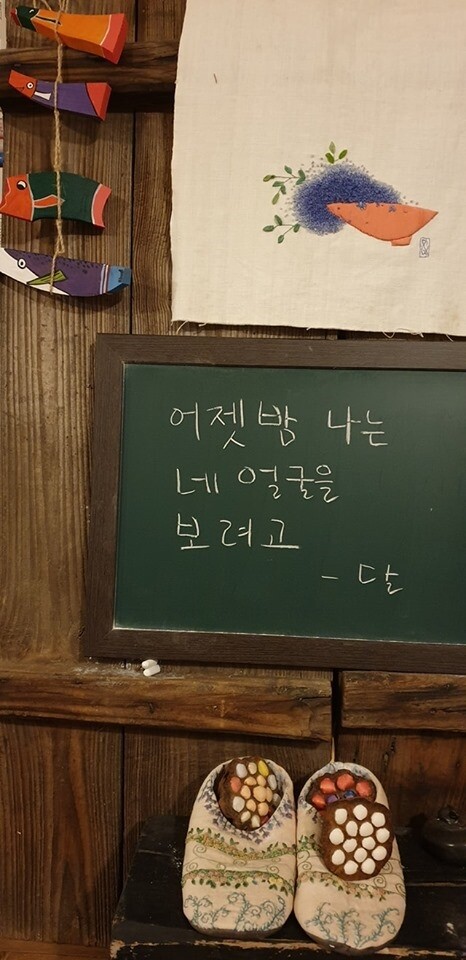 어젯밤 나는
네 얼굴을
보려고
- 달